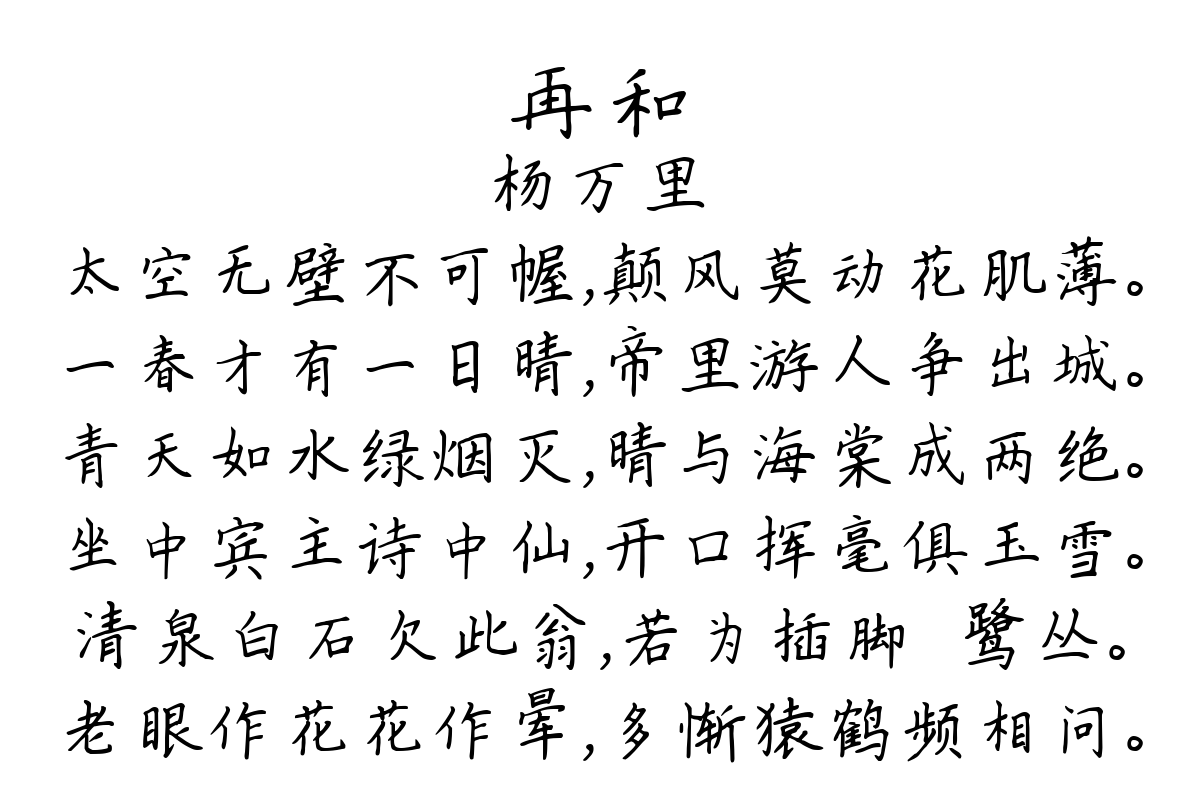 再和
杨万里
太空无壁不可幄,颠风莫动花肌薄。
一春才有一日晴,帝里游人争出城。
青天如水绿烟灭,晴与海棠成两绝。
坐中宾主诗中仙,开口挥毫俱玉雪。
清泉白石欠此翁,若为插脚 鹭丛。
老眼作花花作晕,多惭猿鹤频相问。